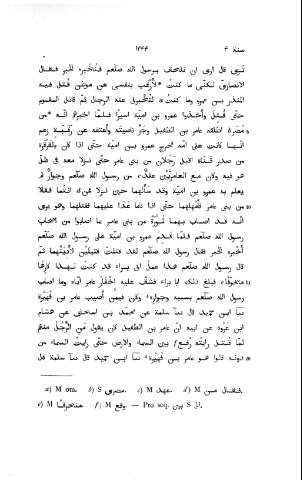 سنة ۴ ۱۴۴۴
ترى قال ارى ان نلحق برسول الله صلعم فنخبره الخبر فقال
الانصارى لكنى ما كنت لأرغب بنفسى عن موطن قتل فيه
المنذر بن عمرو وما كنت لتخبرنى عنه الرجال ثم قاتل القوم
حتى قتل وأخذوا عمرو بن امية اسيرا فلما اخبرهم انه من
مضر اطلقه عامر بن الطفيل وجز ناصيته وأعتقه عن رقبة زعم
انها كانت على امه فخرج عمرو بن امية حتى اذا كان بالقرقرة
من صدر قناة اقبل رجلان من بنى عامر حتى نزلا معه فى ظل
هو فيه وكان مع العامريين عقد من رسول الله صلعم وجوار لم
يعلم به عمرو بن امية وقد سألهما حين نزلا ممن انتما فقالا
من بنى عامر فأمهلهما حتى اذا ناما عدا عليهما فقتلهما وهو يرى
انه قد اصاب بهما ثؤرة من بنى عامر بما اصابوا من اصحاب
رسول الله صلعم فلما قدم عمرو بن امية على رسول الله صلعم
أخبره الخبر فقال رسول الله صلعم لقد قتلت قتيلين لأدينهما ثم
قال رسول الله صلعم هذا عمل ابى براء قد كنت لهذا كارها
متخوفا فبلغ ذلك ابا براء فشق عليه اخفار عامر اياه وما اصاب
رسول الله صلعم بسببه وجواره وكان فيمن أصيب عامر بن فهيرة
نما ابن حميد قال نما سلمة عن محمد بن اسحاق عن هشام
ابن عروة عن ابيه ان عامر بن الطفيل كان يقول من الرجل منهم
لما قتل رأيته رفع بين السماء والارض حتى رأيت السماء من
دونه قالوا هو عامر بن فهيرة نما ابن حميد قال نما سلمة قال
a) M om. b) S مصرى. c) M عهد. d) M فقال ممن.
e) M متخوفا f) M وقع. — Pro seq. بين S الى.